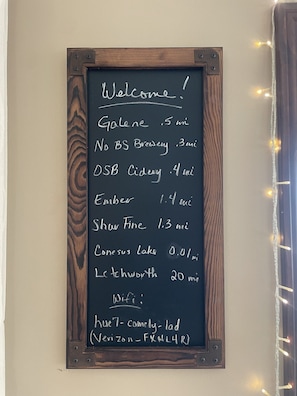 Welcome!
Galene .5 mi
No BS Brewery .3 mi
OSB Cidery .4 mi
Ember 1.4 mi
Shur Fine 1.3 mi
Conesus Lake 0.01 mi
Letchworth 20 mi
Wifi:
hue7-comely-lad
(Verizon_FXML4R)